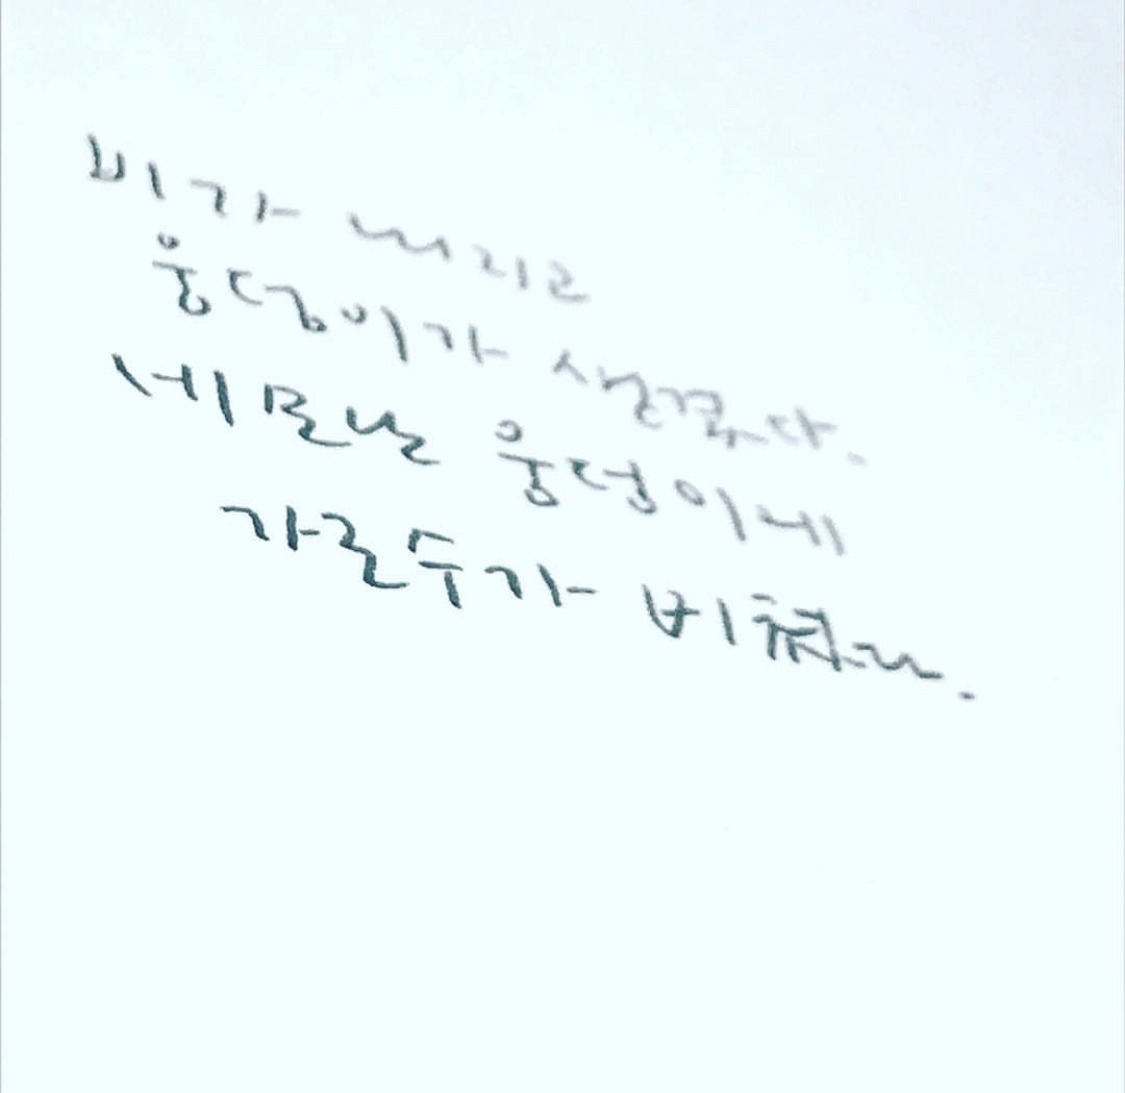 비가 내리고
웅덩이가 생겼다.
세모난 웅덩이에
가로수가 비췄다.